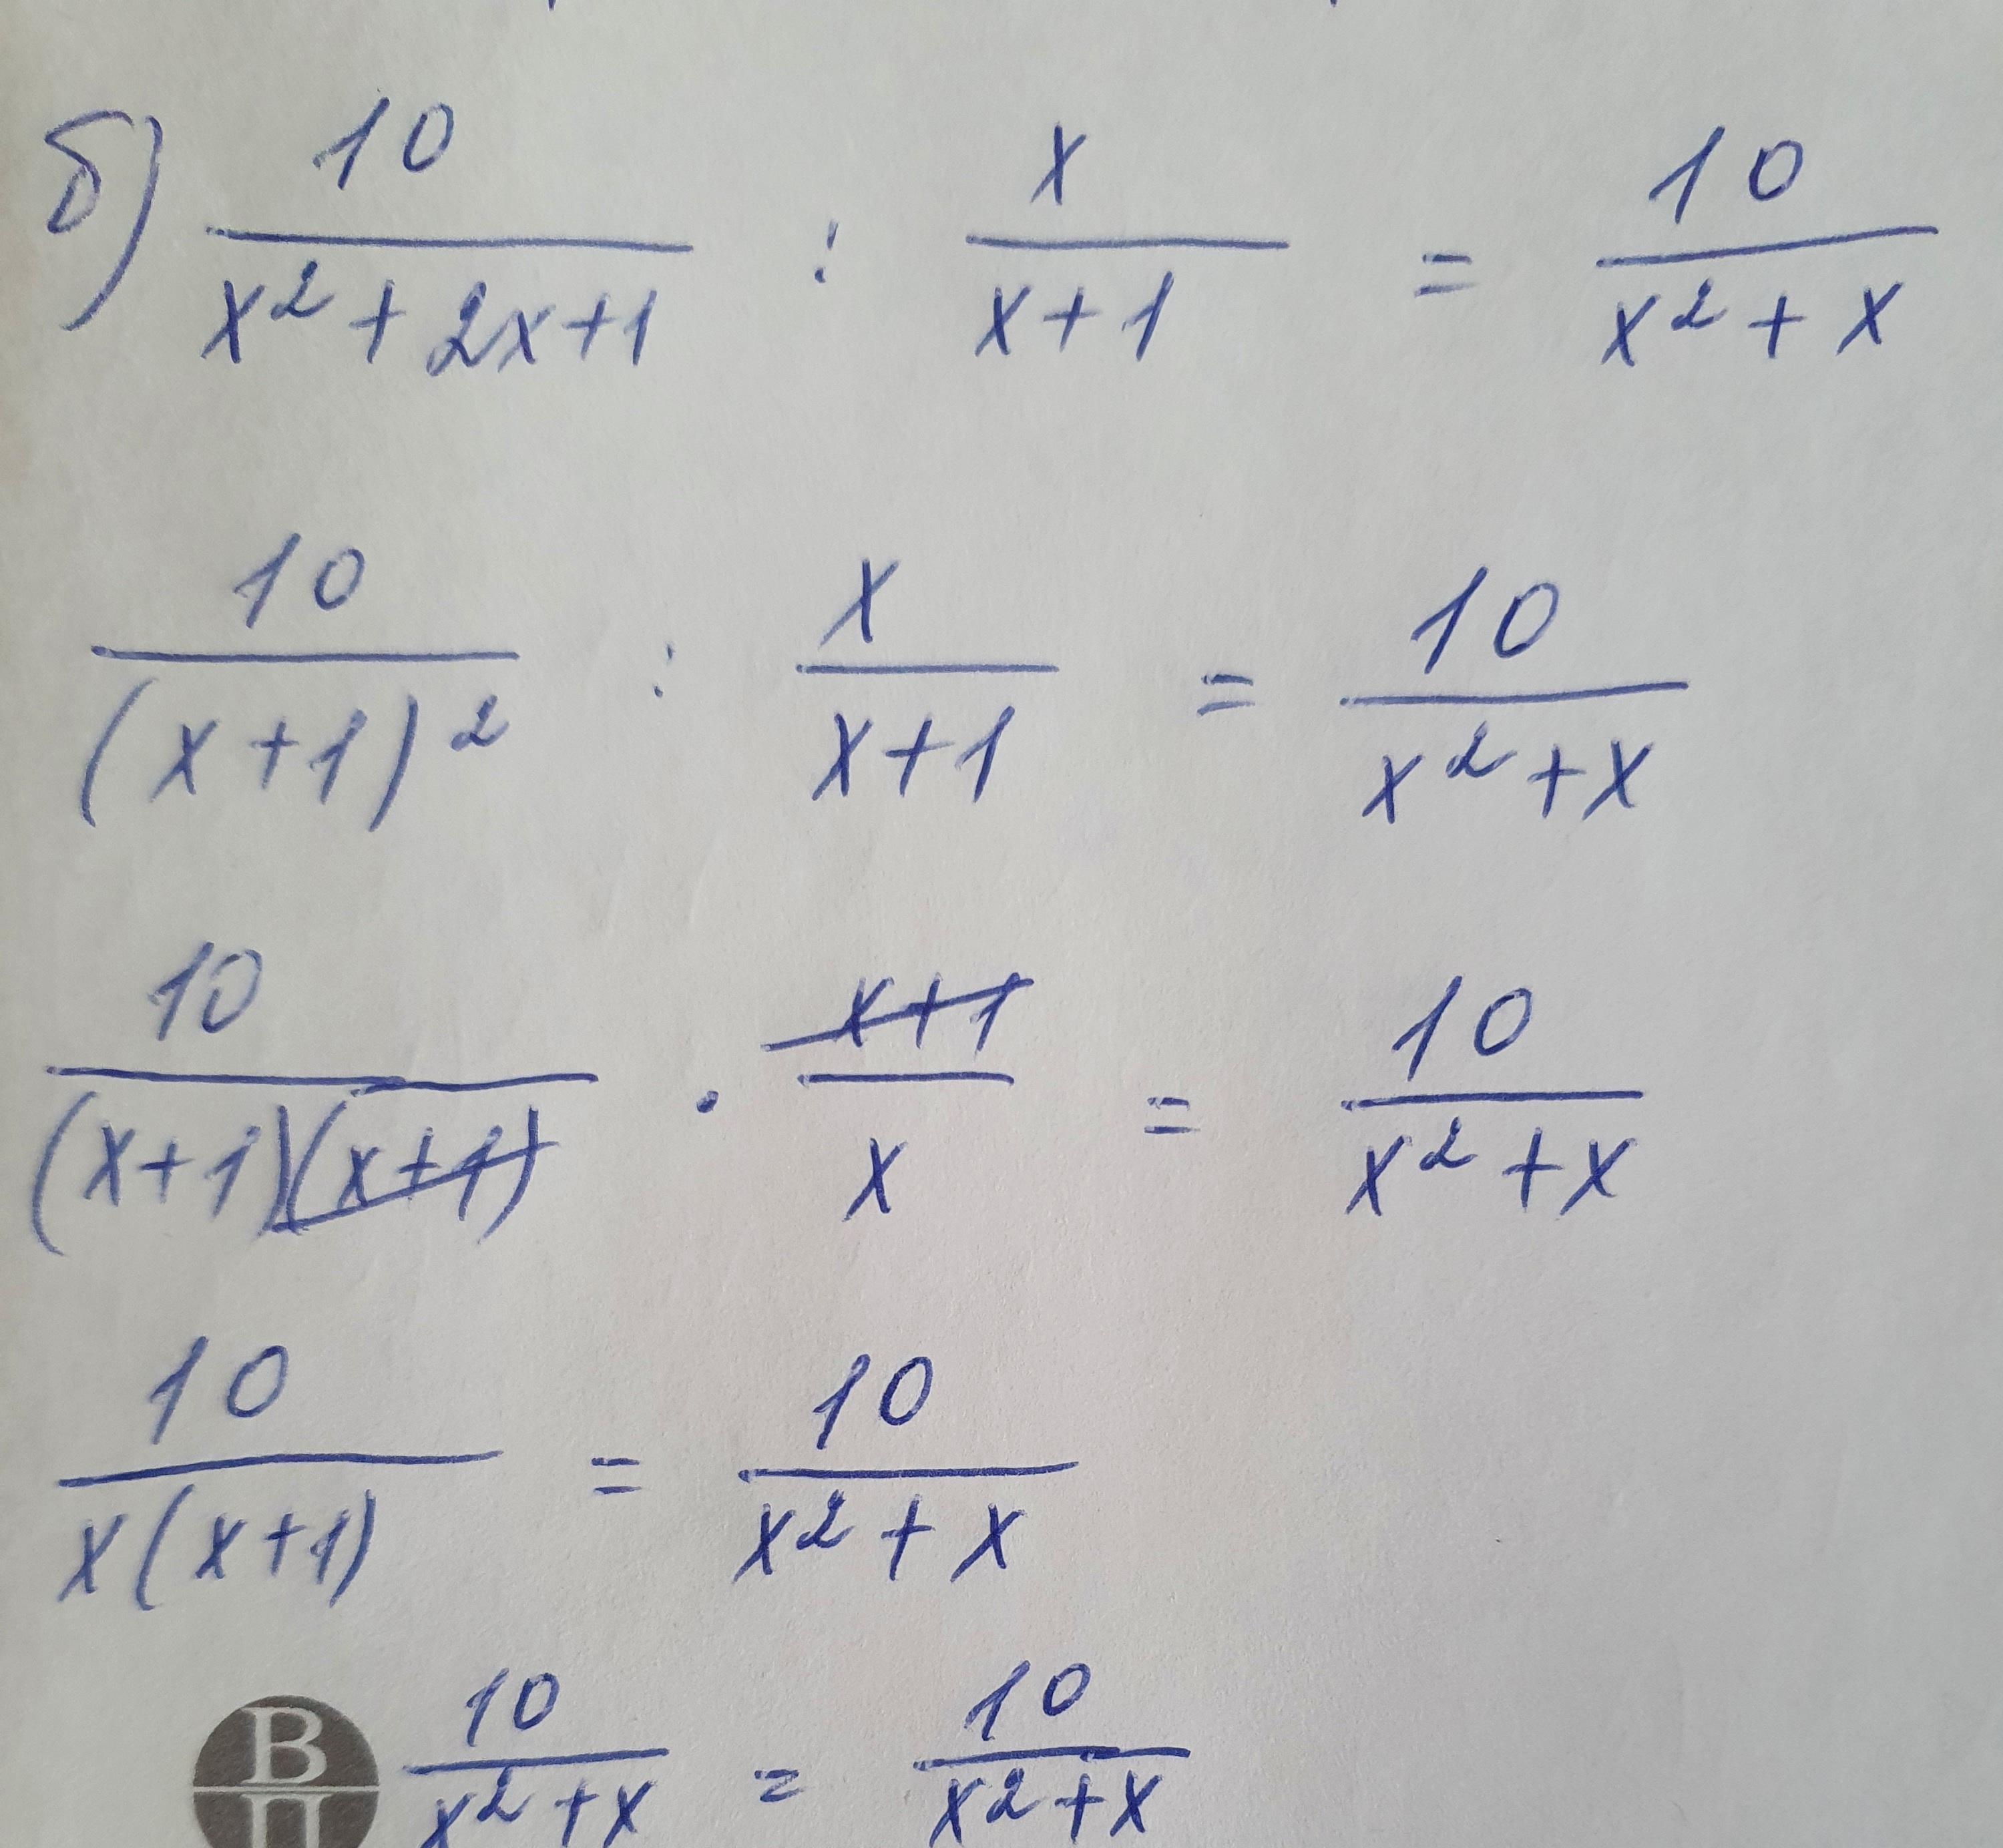 б) 10/(x²+2x+1) : x/(x+1) = 10/(x²+x)
10/(x+1)² : x/(x+1) = 10/(x²+x)
10/((x+1)(x+1)) · (x+1)/x = 10/(x²+x)
10/(x(x+1)) = 10/(x²+x)
10/(x²+x) = 10/(x²+x)
В